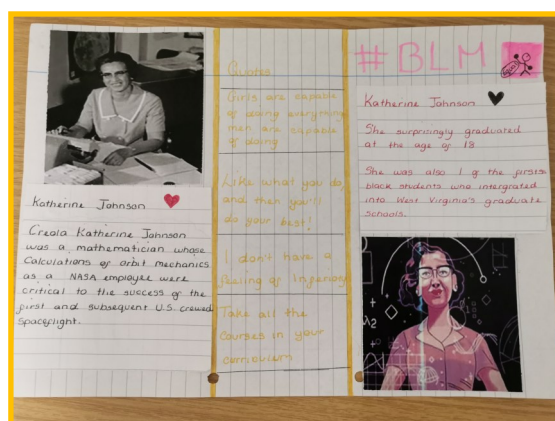 Katherine Johnson
Creola Katherine Johnson
was a mathematician whose
Calculations of orbit mechanics
as a NASA employee were
critical to the success of the
first and subsequent U.S. crewed
Spaceflight.
Quotes
Girls are capable
of doing everything
men are capable
of doing
Like what you do,
and then you'll
do your best!
I don't have a
feeling of Inferiosy
Take all the
courses in your
curriculum
#BLM
Katherine Johnson
She surprisingly graduated
at the age of 18
She was also 1 of the firsts
black students who intergrated
into West Virginia's graduate
schools.